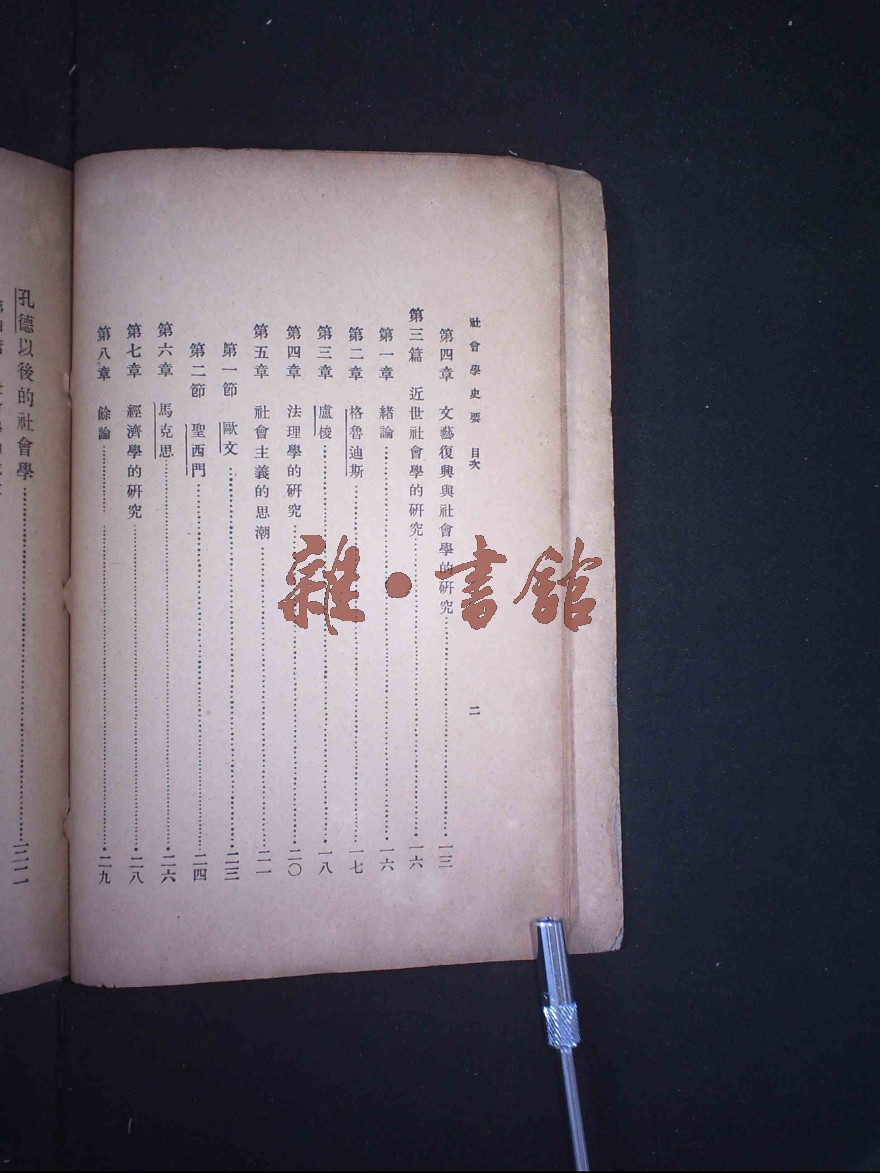 社會學史要　目次
二
第四章　文藝復興與社會學的研究……一三
第三篇　近世社會學的研究……一六
第一章　緒論……一六
第二章　格魯迪斯……一七
第三章　盧梭……一八
第四章　法理學的研究……二〇
第五章　社會主義的思潮……二一
第一節　歐文……二三
第二節　聖西門……二四
第六章　馬克思……二六
第七章　經濟學的研究……二八
第八章　餘論……二九
孔德以後的社會學……
雜・書館